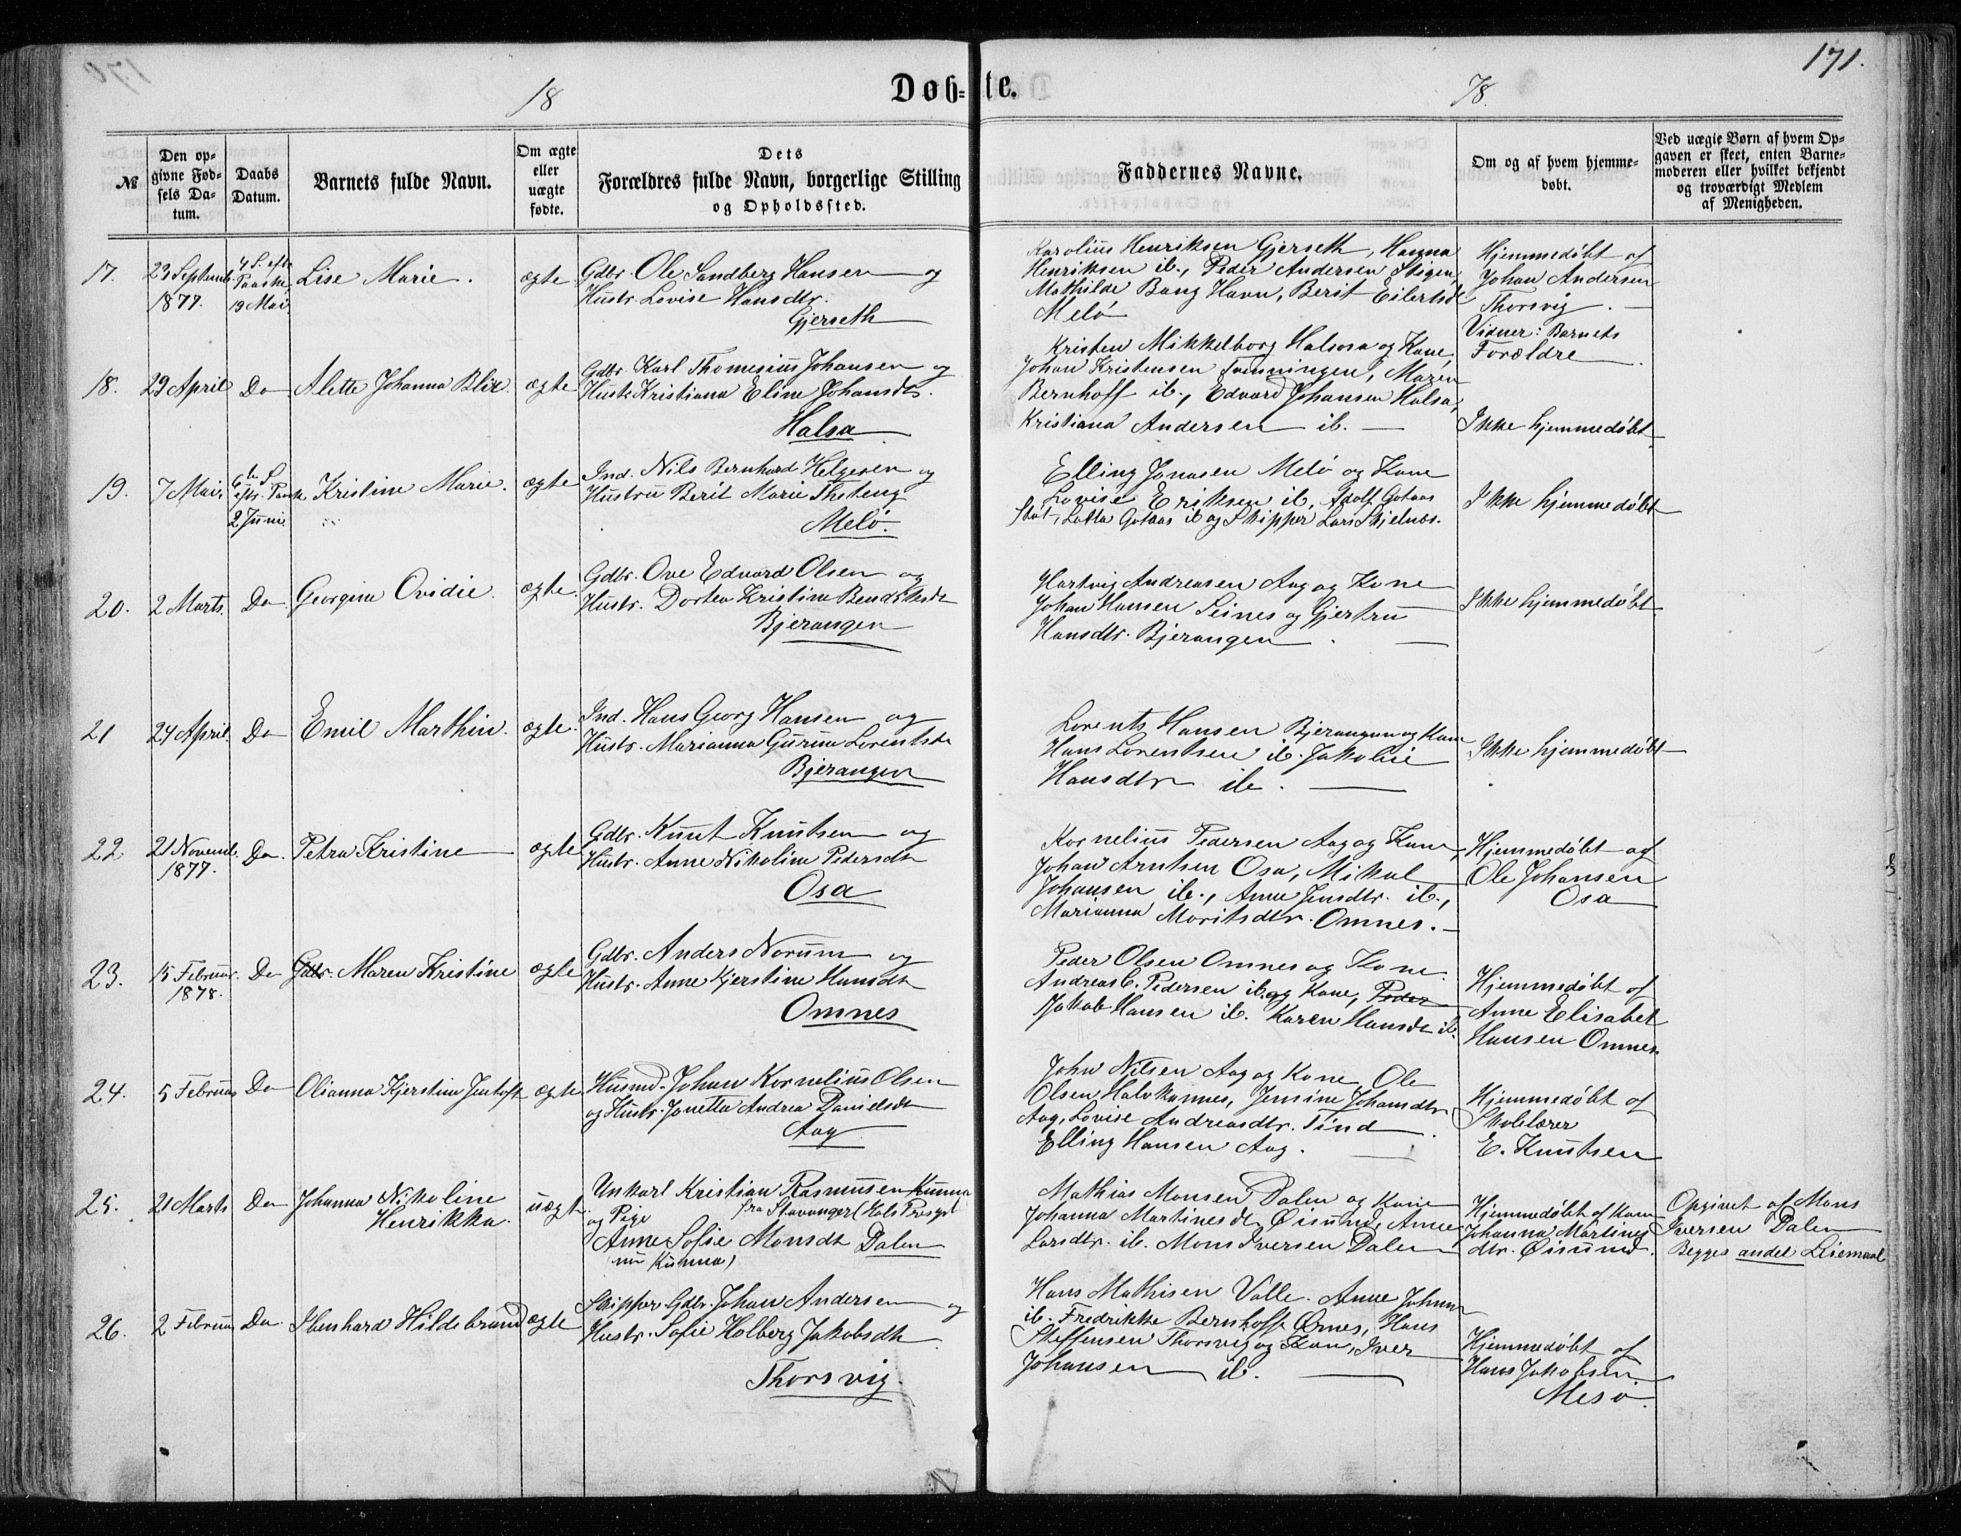 171.
18 Døbte. 78.
№
Den opgivne Fødsels Datum.
Daabs Datum.
Barnets fulde Navn.
Om ægte eller uægte fødte.
Dets Forældres fulde Navn, borgerlige Stilling og Opholdssted.
Faddernes Navne.
Om og af hvem hjemmedøbt.
Ved uægte Børn af hvem Opgaven er skeet, enten Barnemoderen eller hvilket bekjendt og troværdigt Medlem af Menigheden.
17.
23 Septemb.
1877.
4 S. eft.
Paaske
19 Mai
Lise Marie.
ægte
Gdbr. Ole Sandberg Hansen og
Hustr. Lovise Hansdtr.
Gjerseth
Karolius Henriksen Gjerseth, Hanna
Henriksen ib., Peder Andersen Stigen,
Mathilde Bang Havn, Berit Eilertsdt
Melö
Hjemmedøbt af
Johan Andersen
Thorsvig.
Vidner: Barnets
Forældre
18.
29 April
Do
Alette Johanna Blix.
ægte
Gdbr. Karl Thomesius Johansen og
Hustr. Kristiana Eline Johansdt.
Halsa
Kristen Mikkelborg Halsosa og Kone,
Johan Kristensen Tenningen, Maren
Bernhoff ib., Edvard Johansen Halsa,
Kristiana Andersen ib.
Ikke hjemmedøbt
19.
7 Mai.
6te S.
eftr. Paaske
2 Junie
Kristine Marie.
ægte
Ind. Nils Bernhard Helgesen og
Hustru Berit Marie
Melö.
Elling Jonasen Melö og Kone
Lovise Eriksen ib., Adolf Gotaas
Stöt, Lotta Gotaas ib og Skipper Lars Skjelnes.
Ikke hjemmedøbt
20.
2 Marts.
Do
Georgine Ovidie.
ægte
Gdbr. Ove Edvard Olsen og
Hustr. Dortea Kristine Bendiksdt
Bjerangen
Hartvig Andreasen Aag og Kone
Johan Hansen Seines og Gjertru
Hansdtr. Bjerangen.
Ikke hjemmedøbt
21
24 April.
Do
Emil Marthin.
ægte.
Ind. Hans Georg Hansen og
Hustr. Marianna Gurina Lorentsdt
Bjerangen
Lorents Hansen Bjerangen og Kone
Hans Lorentsen ib. Jakobie
Hansdtr ib.
Ikke hjemmedøbt
22
21 Novemb.
1877.
Do.
Petra Kristine
ægte
Gdbr. Knut Knutsen og
Hustr. Anne Nikoline Pedersdt
Osa
Kornelius Pedersen Aag og Kone,
Johan Arntsen Osa, Mikal
Johansen ib., Anne Jensdtr. ib.,
Marianna Moritsdtr. Omnes.
Hjemmedøbt af
Ole Johansen
Osa
23.
15 Februar.
1878.
Do
Gdbr. Maren Kristine
ægte
Gdbr. Anders Norum og
Hustr. Anne Kjerstine Hansdt
Omnes
Peder Olsen Omnes og Kone.
Andreas C. Pedersen ib. og Kone, Peder
Jakob Hansen ib. Karen Hansdt ib.
Hjemmedøbt af
Anne Elisabet
Hansen Omnes
24.
5 Februar
Do
Olianna Kjerstine Jentoft
ægte
Husmd. Johan Kornelius Olsen
og Hustr. Jonetta Andrea Danielsdt
Aag
John Nilsen Aag og Kone, Ole
Olsen Halvkannes, Jensine Johansdtr
Aag, Lovise Andreasdtr. Sund.
Elling Hansen Aag.
Hjemmedøbt af
Skolelærer
E. Knutsen
25.
21 Marts
Do
Johanna Nikoline
Henrikka.
uægt
Unkarl Kristian Rasmusen Kunna
og Pige fra Stavanger (Hals Presgd
Anne Sofie Monsdt Dalen
nu Kunna)
Mathias Monsen Dalen og Kone
Johanna Martinesdt Øisund, Anne
Larsdtr. ib. Mons Iversen Dalen
Hjemmedøbt af Kone
Johanna Martines
dtr. Øisund.
Opgivet af Mons
Iversen Dalen
Begges andet Leiermaal
26.
2 Februar
Do
Ibenhard Hildebrand
ægte
Skipper Gdbr. Johan Andersen og
Hustr. Sofie Holberg Jakobsdt.
Thorsvig.
Hans Mathisen Valle. Anne Johan
ib. Fredrikke Bernhoft Ørnes, Hans
Steffensen Thorsvig og Kone, Iver
Johansen ib.
Hjemmedøbt af
Hans Jakobsen
Mesö.